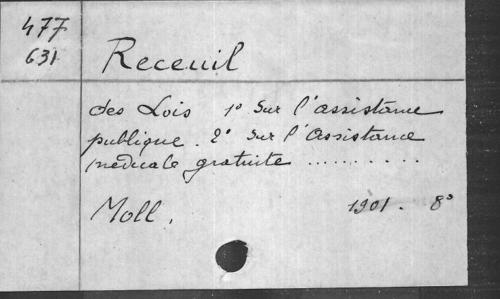 477
631
Receuil
des Lois 1° Sur l'assistance
publique. 2° Sur l'Assistance
médicale gratuite ..........
Moll. 1901. 8°